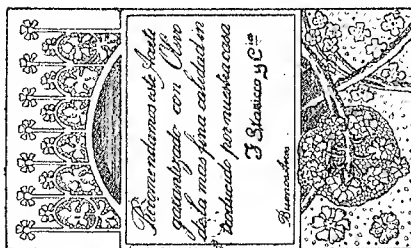 Recomendamos este Aceite
garantizado con Olivo
de la mas fina calidad in
troducido por nuestra casa
J. Stariaco y Cia
Buenos Aires